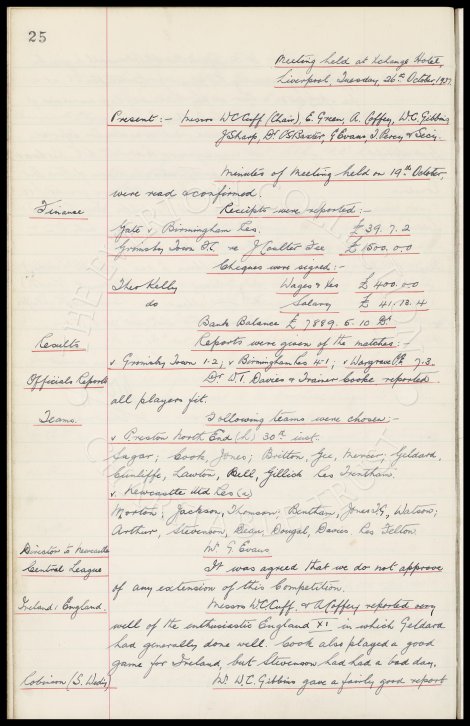 25
Meeting held at Exchange Hotel,
Liverpool, Tuesday, 26th October 1937.
Present :- Messrs W.C. Cuff (Chair), E. Green, A. Coffey, W.C. Gibbins
J. Sharp, Dr. C.S. Baxter, G. Evans, T. Percy & Secy.
Minutes of Meeting held on 19th October,
were read & confirmed.
Finance Receipts were reported :-
Gate v. Birmingham Res. £ 39. 7. 2
Grimsby Town F.C. re J Coulter Fee £ 1500. 0. 0
Cheques were signed :-
Theo Kelly Wages & Exs £ 400. 0. 0
do Salary £ 41. 13. 4
Bank Balance £ 7889. 5. 10 Dr.
Results Reports were given of the matches :-
v Grimsby Town 1-2; v Birmingham Res 4-1; v Wargrave 7-3.
Officials Reports Dr W.T. Davies & Trainer Cooke reported
all players fit.
Teams. Following teams were chosen :-
v Preston North End (H) 30th inst.
Sagar; Cook, Jones; Britton, Gee, Mercer; Geldard,
Cunliffe, Lawton, Bell, Gillick Res Trentham.
v. Newcastle Utd Res (a)
Morton; Jackson, Thomson; Bentham, Jones T.G., Watson;
Arthur, Stevenson, Dean, Dougal, Davies. Res Felton
Director to Newcastle Mr G. Evans
Central League It was agreed that we do not approve
of any extension of this Competition.
Ireland v. England. Messrs W.C. Cuff & A. Coffey reported very
well of the enthusiastic England XI in which Geldard
had generally done well. Cook also played a good
game for Ireland, but Stevenson had had a bad day.
Robinson (S. Weds) Mr. W.C. Gibbins gave a fairly good report